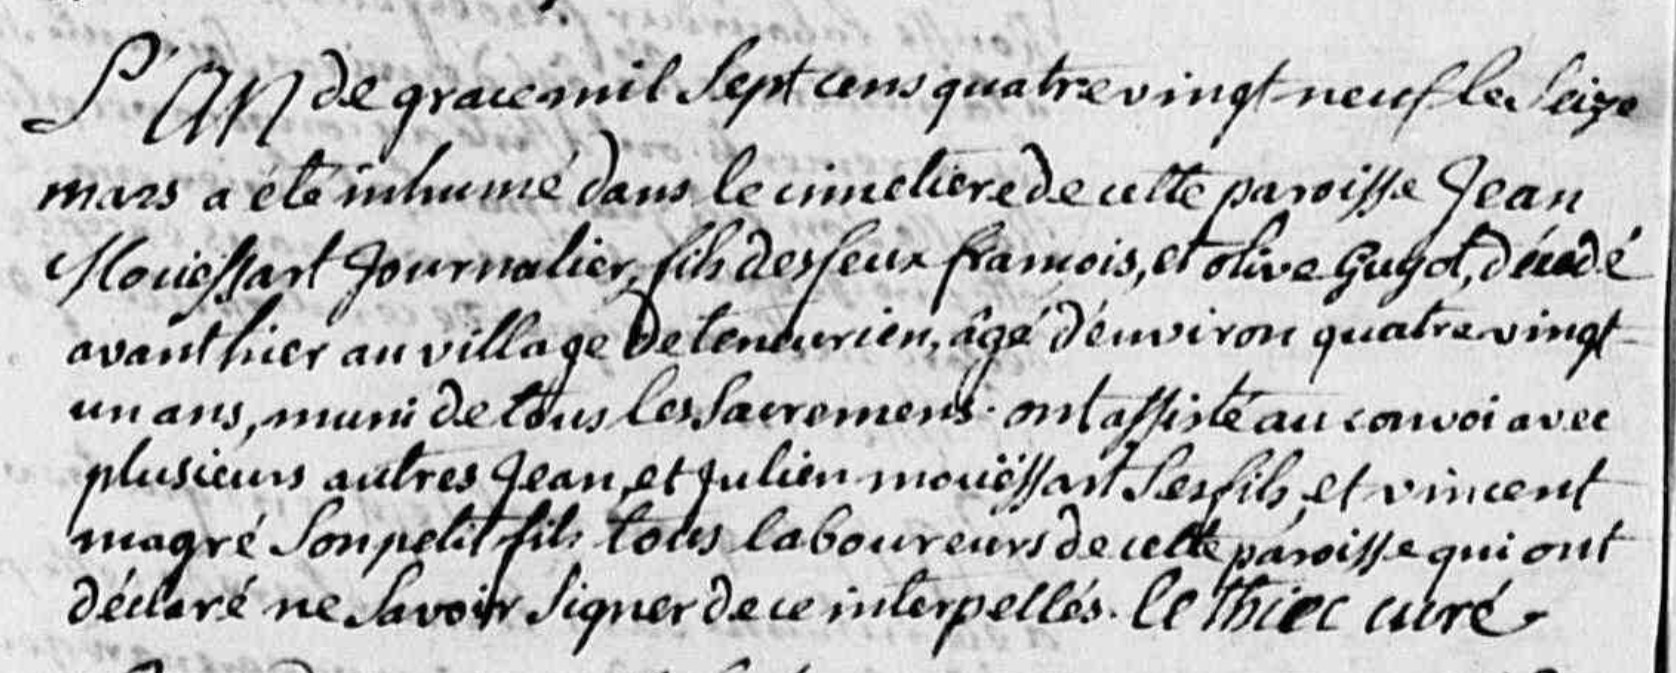 L'AN de grace mil sept cens quatre vingt neuf le seize
mars a été inhumé dans le cimetiere de cette paroisse Jean
Mouëssart Journalier, fils des feux françois, et olive Guyot, décédé
avant hier au village de teneurien, âgé d'environ quatre vingt
un ans, muni de tous les sacremens. ont assisté au convoi avec
plusieurs autres Jean, et Julien mouëssart ses fils, et vincent
magré son petit fils tous laboureurs de cette paroisse qui ont
déclaré ne savoir signer de ce interpellés. le thiec curé